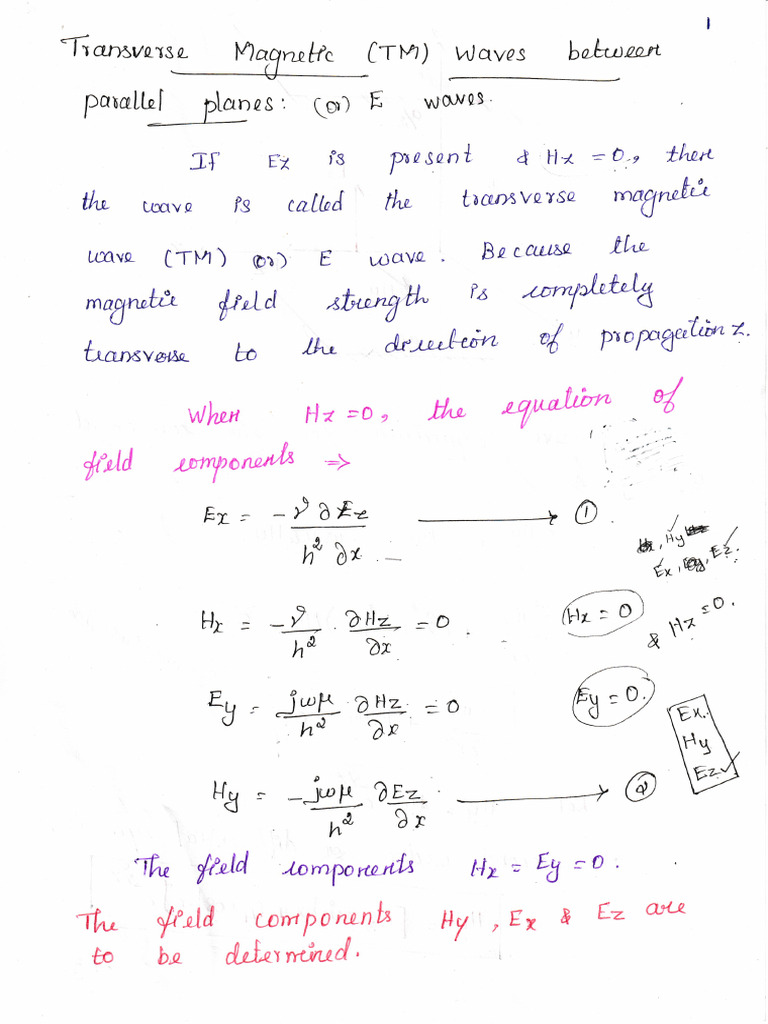 1
Transverse Magnetic (TM) waves between
parallel planes: (or) E waves.
If Ez is present & Hz = 0, then
the wave is called the transverse magnetic
wave (TM) (or) E wave. Because the
magnetic field strength is completely
transverse to the direction of propagation z.
When Hz = 0, the equation of
field components ⇒
Ex = -γ/h² ∂Ez/∂x ⟶ ①
Hy
Ex, Ey, Ez.
Hx = -γ/h² . ∂Hz/∂x = 0. Hx = 0 & Hz = 0.
Ey = jωμ/h² ∂Hz/∂x = 0 Ey = 0.
Ex.
Hy
Ez ✓
Hy = -jωμ/h² ∂Ez/∂x ⟶ ②
The field components Hx = Ey = 0.
The field components Hy, Ex & Ez are
to be determined.